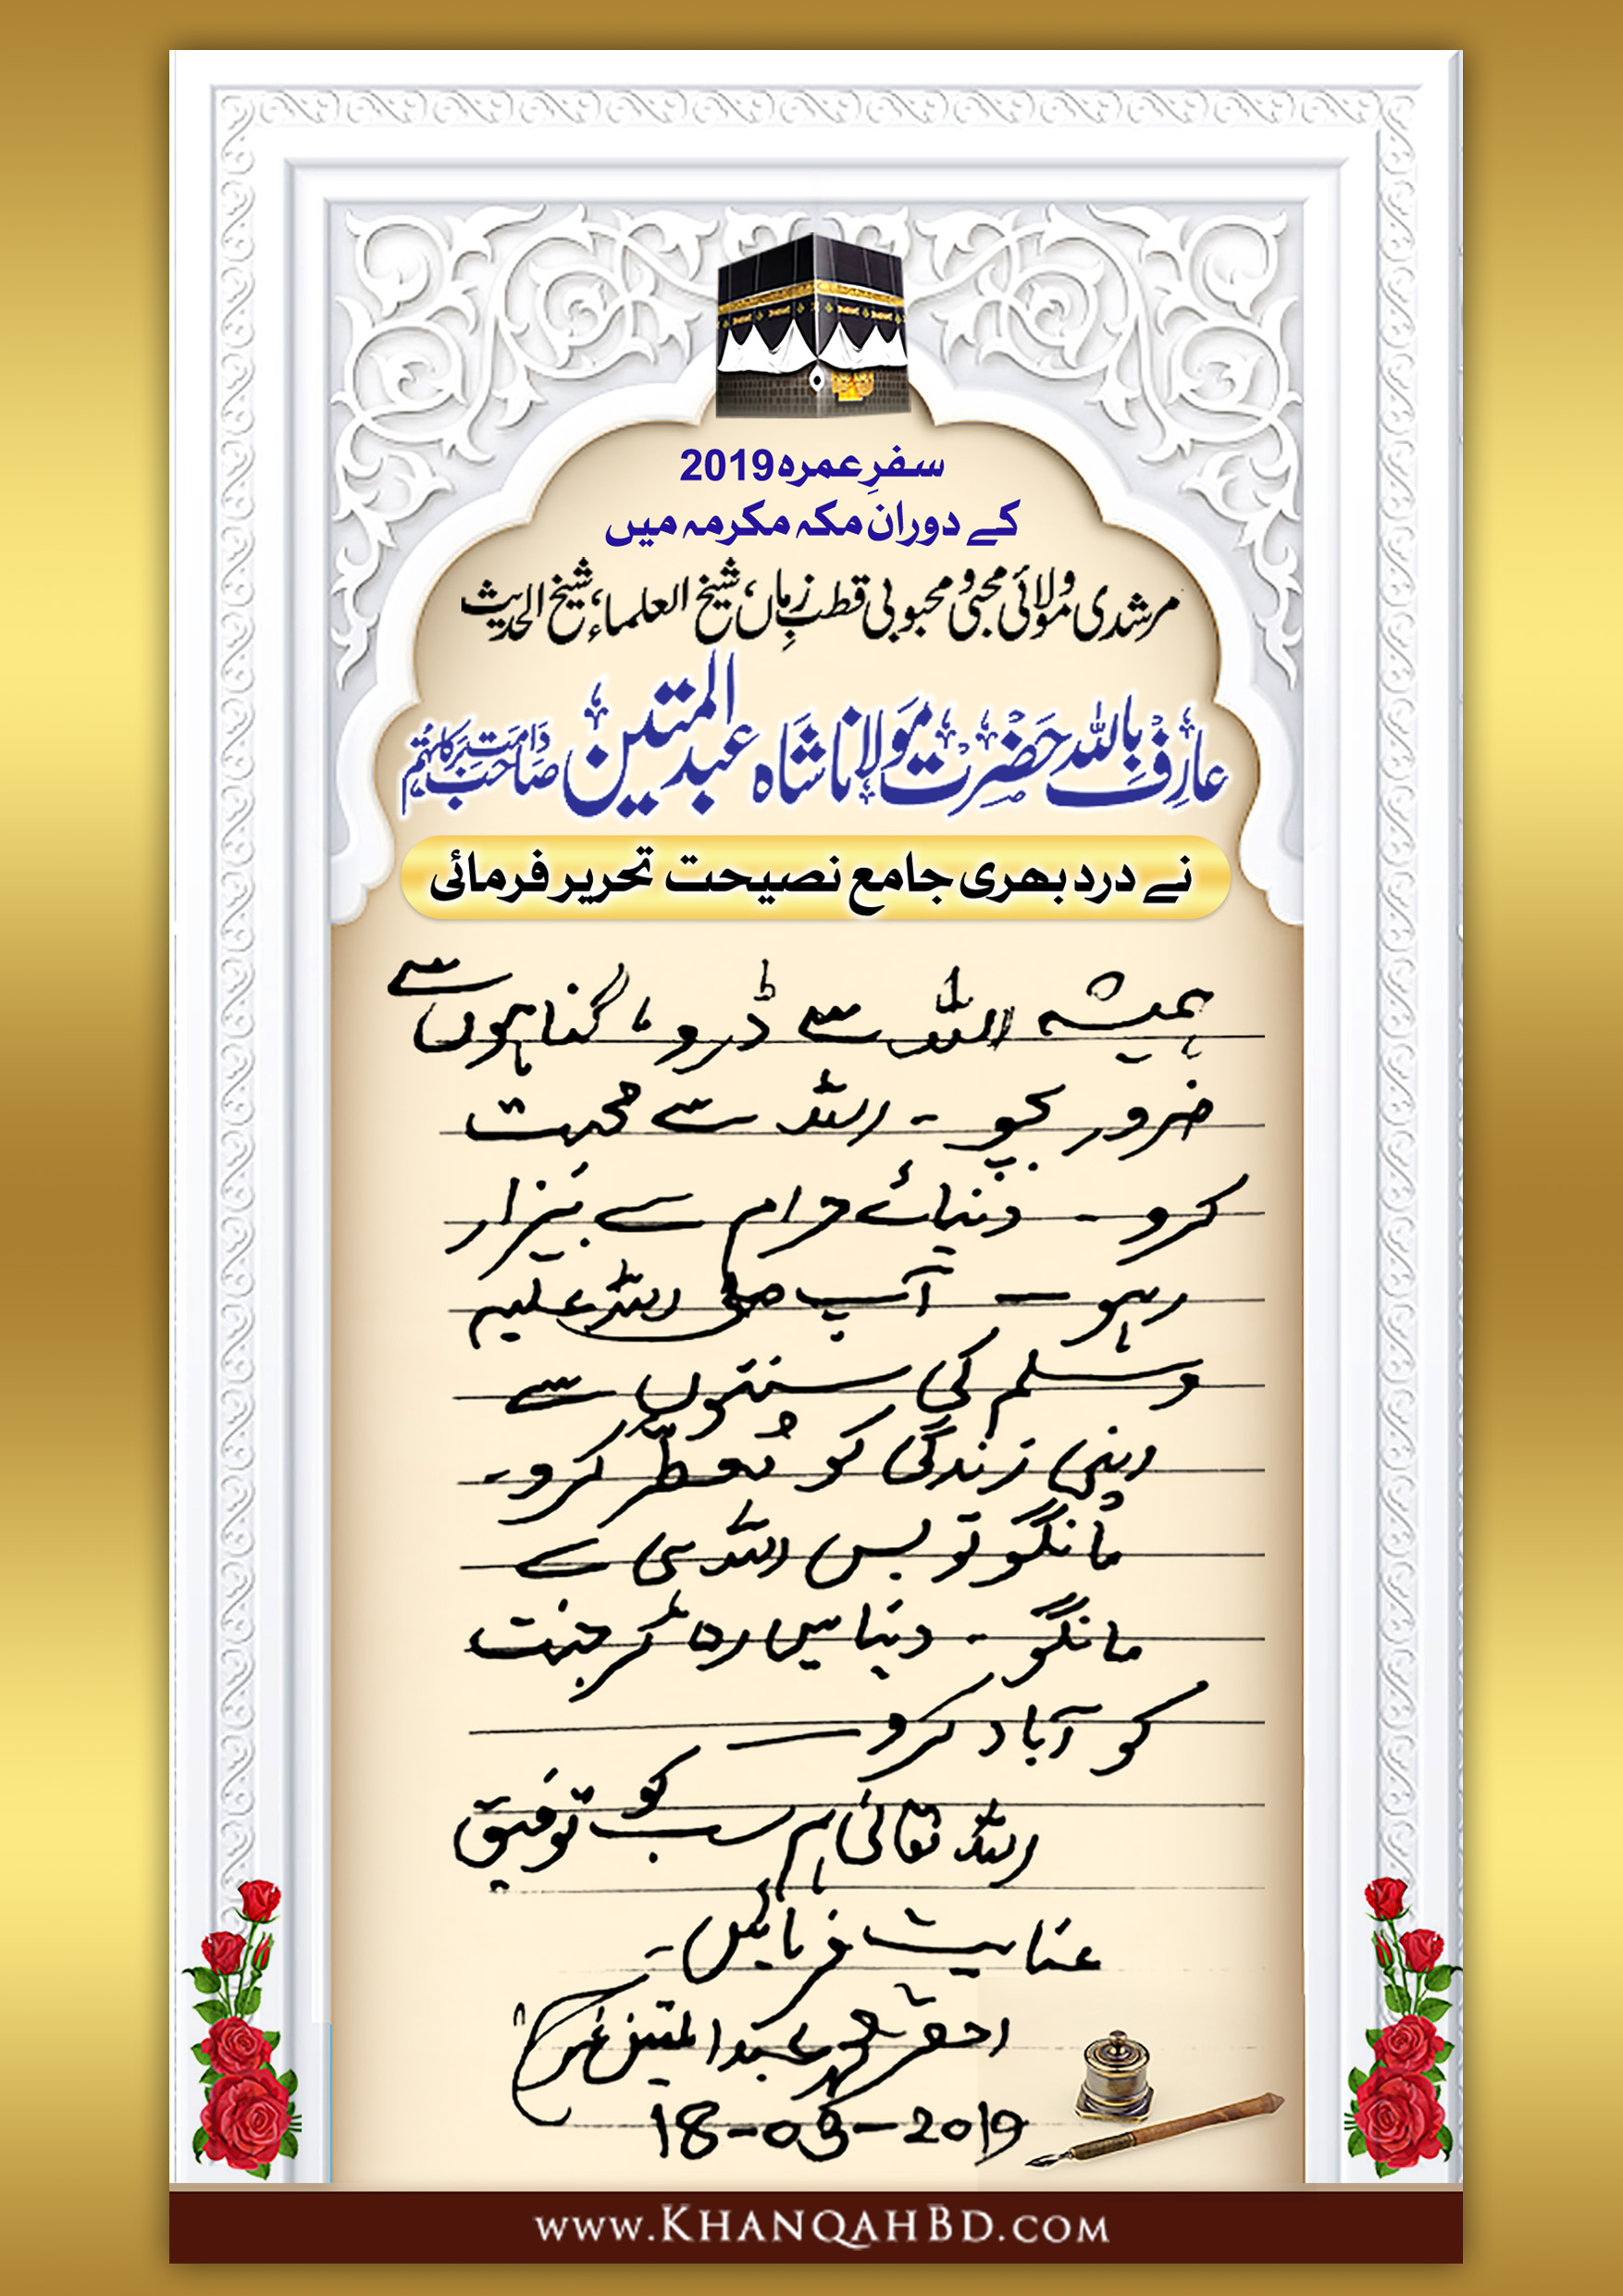 سفرِ عمرہ 2019
کے دوران مکہ مکرمہ میں
مرشدی و مولائی محبی و محبوبی قطب زماں، شیخ العلماء، شیخ الحدیث
عارف باللہ حضرت مولانا شاہ عبد المتین صاحب دامت برکاتہم
نے درد بھری جامع نصیحت تحریر فرمائی
ہمیشہ اللہ سے ڈرو، گناہوں سے
ضرور بچو ۔ اللہ سے محبت
کرو ۔ دنیائے حرام سے بیزار
رہو — آپ صلی اللہ علیہ
وسلم کی سنتوں سے
اپنی زندگی کو مُعطّر کرو ۔
مانگو تو بس اللہ ہی سے
مانگو ۔ دنیا میں رہ کر جنت
کو آباد کرو —
اللہ تعالیٰ ہم سب کو توفیق
عنایت فرمائیں ۔
احقر محمد عبد المتین
18-03-2019
www.KhanqahBd.com